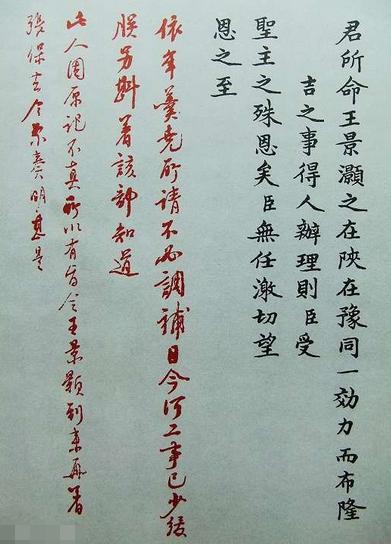 君所命王景灝之在陝在豫同一効力而布隆
吉之事得人辦理則臣受
聖主之殊恩矣臣無任激切望
恩之至
依年羹堯所請不必調補目今河工事已少緩
朕另斟著該部知道
此人因原記不真所以有旨令王景顥到來再著
張保去今奏明是